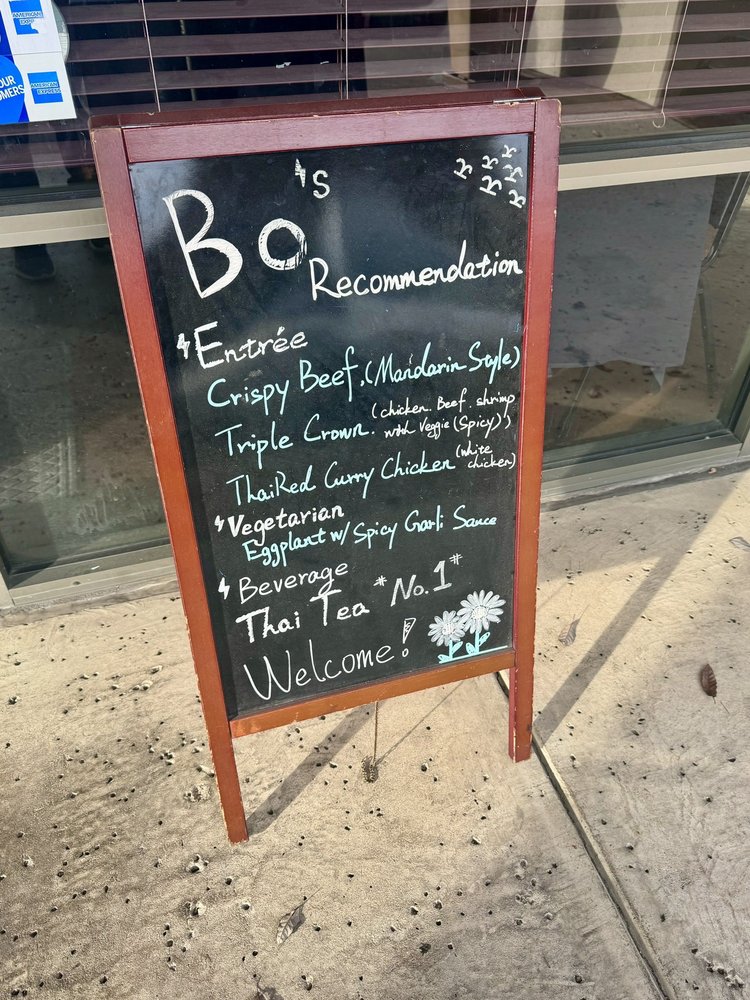 AMERICAN EXPRESS
OUR
AMERICAN
EXPRESS
Bo's
Recommendation
Entrée
Crispy Beef. (Mandarin Style)
Triple Crown. (chicken. Beef. shrimp
with Veggie (Spicy))
Thai Red Curry Chicken (white
chicken)
Vegetarian
Eggplant w/ Spicy Garli Sauce
Beverage
Thai Tea "No.1"
Welcome!